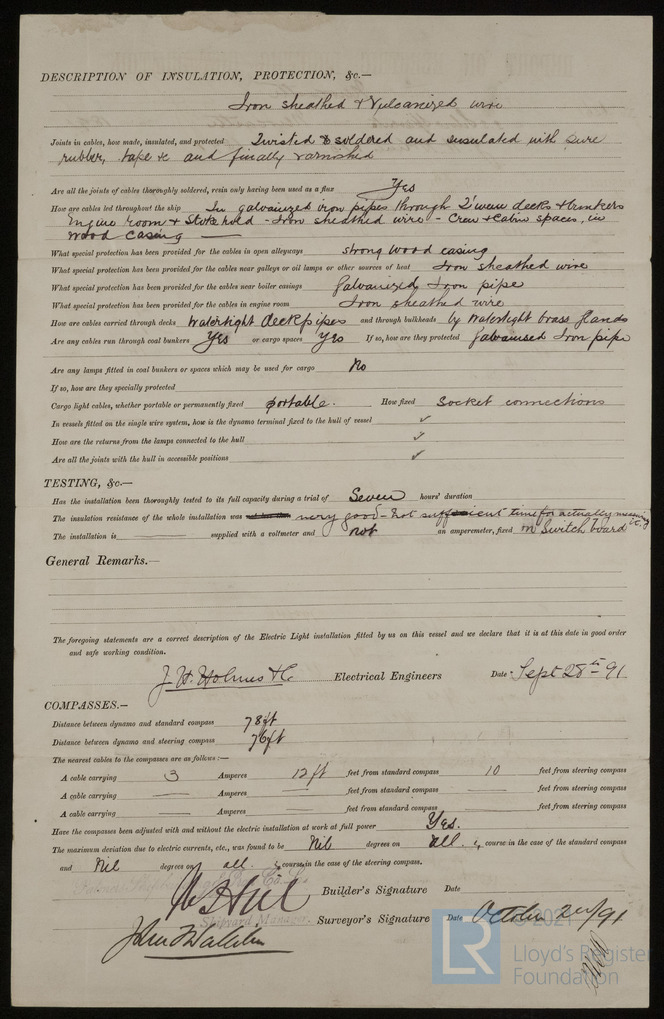 DESCRIPTION OF INSULATION, PROTECTION, &c.—
Iron sheathed & Vulcanized wire
Joints in cables, how made, insulated, and protected Twisted & soldered and insulated with pure
rubber, tape &c and finally varnished
Are all the joints of cables thoroughly soldered, resin only having been used as a flux Yes
How are cables led throughout the ship In galvanized iron pipes through T'ween decks & bunkers
Engine room & Stokehold - Iron sheathed wire - Crew & Cabin spaces, in
wood casing
What special protection has been provided for the cables in open alleyways strong wood casing
What special protection has been provided for the cables near galleys or oil lamps or other sources of heat Iron sheathed wire
What special protection has been provided for the cables near boiler casings Galvanized Iron pipe
What special protection has been provided for the cables in engine room Iron sheathed wire
How are cables carried through decks Watertight deck pipes and through bulkheads by watertight brass glands
Are any cables run through coal bunkers Yes or cargo spaces Yes If so, how are they protected Galvanised Iron pipe
Are any lamps fitted in coal bunkers or spaces which may be used for cargo No
If so, how are they specially protected
Cargo light cables, whether portable or permanently fixed portable. How fixed Socket connections
In vessels fitted on the single wire system, how is the dynamo terminal fixed to the hull of vessel ✓
How are the returns from the lamps connected to the hull ✓
Are all the joints with the hull in accessible positions ✓
TESTING, &c.—
Has the installation been thoroughly tested to its full capacity during a trial of Seven hours' duration
The insulation resistance of the whole installation was very good - not sufficient time for actually measuring
The installation is supplied with a voltmeter and not an amperemeter, fixed on Switch board
General Remarks.—
The foregoing statements are a correct description of the Electric Light installation fitted by us on this vessel and we declare that it is at this date in good order
and safe working condition.
J. H. Holmes & Co Electrical Engineers Date Sept 28th 91
COMPASSES.—
Distance between dynamo and standard compass 78ft
Distance between dynamo and steering compass 76ft
The nearest cables to the compasses are as follows:—
A cable carrying 3 Amperes 12 ft feet from standard compass 10 feet from steering compass
A cable carrying — Amperes — feet from standard compass — feet from steering compass
A cable carrying — Amperes — feet from standard compass — feet from steering compass
Have the compasses been adjusted with and without the electric installation at work at full power Yes.
The maximum deviation due to electric currents, etc., was found to be Nil degrees on all course in the case of the standard compass
and Nil degrees on all course in the case of the steering compass.
Builder's Signature Date
Shipyard Manager
Surveyor's Signature Date October 2nd/91
© 2021
LR Lloyd's Register
Foundation